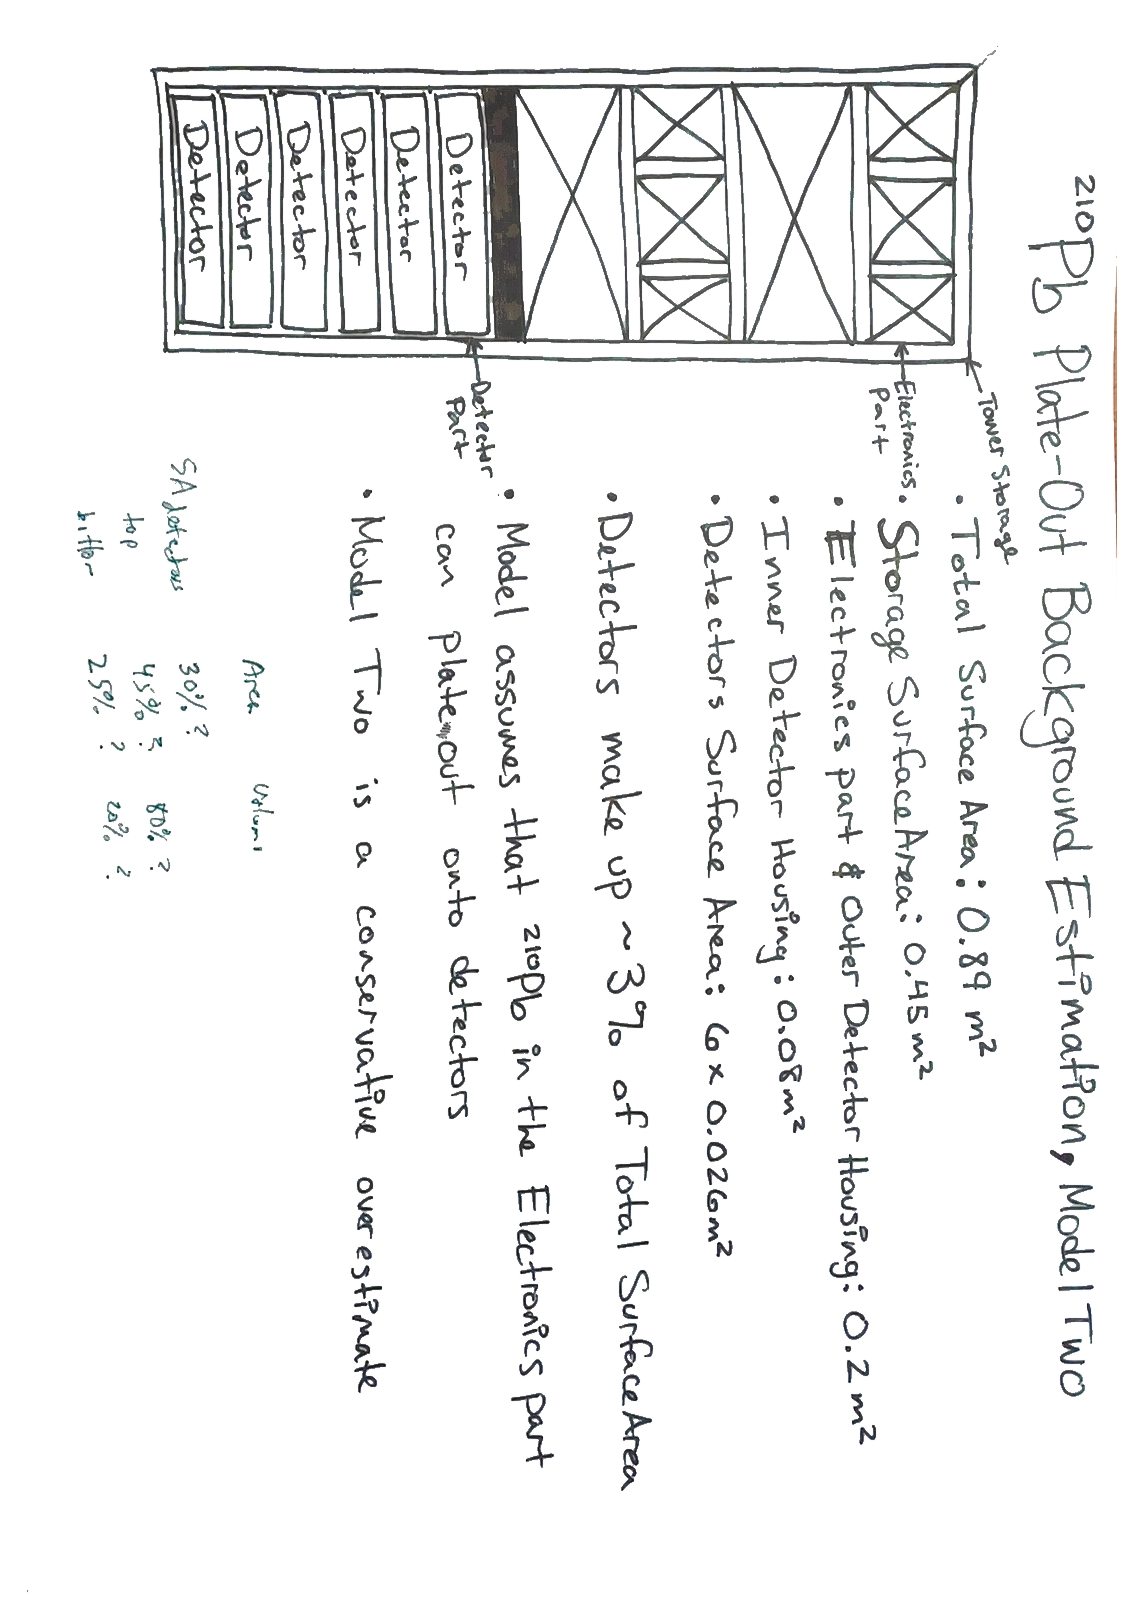 210Pb Plate-Out Background Estimation, Model Two
Tower Storage
Electronics Part
Detector Part
Detector
Detector
Detector
Detector
Detector
Detector
• Total Surface Area: 0.89 m²
• Storage Surface Area: 0.45 m²
• Electronics part & Outer Detector Housing: 0.2 m²
• Inner Detector Housing: 0.08 m²
• Detectors Surface Area: 6 x 0.026 m²
• Detectors make up ~3% of Total Surface Area
• Model assumes that 210Pb in the Electronics part
can plate out onto detectors
• Model Two is a conservative overestimate
Area
SA detectors 30% ?
top 45% ? 80% ?
25% ? 20% ?